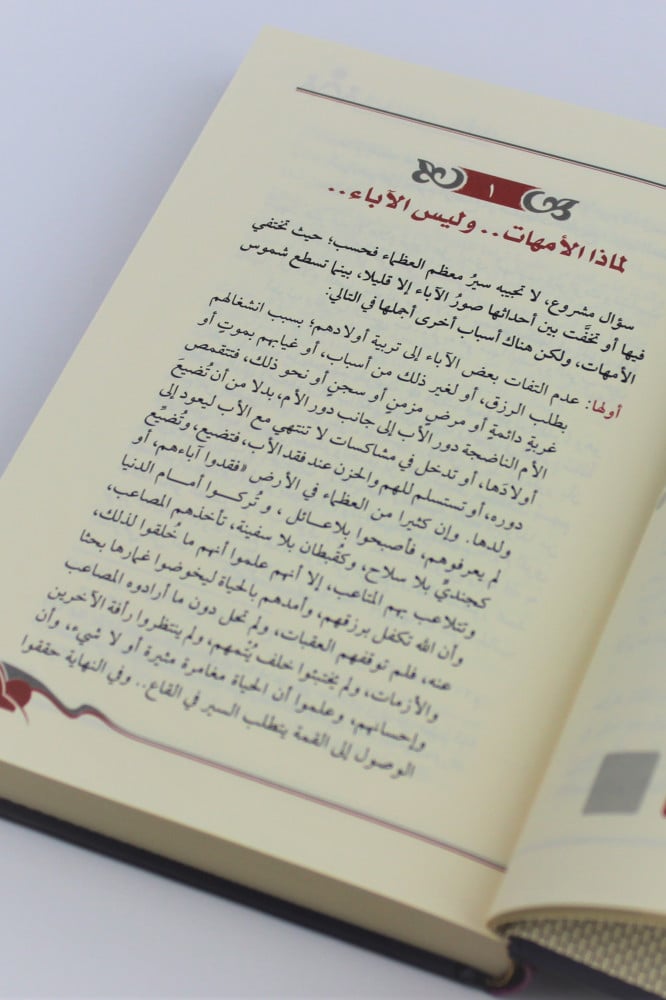 ١
لماذا الأمهات.. وليس الآباء..
سؤال مشروع، لا تجيبه سيرُ معظم العظماء فحسب؛ حيث تختفي
فيها أو تخفَّت بين أحداثها صورُ الآباء إلا قليلا، بينما تسطع شموس
الأمهات، ولكن هناك أسباب أخرى أجملها في التالي:
أولها: عدم التفات بعض الآباء إلى تربية أولادهم؛ بسبب انشغالهم
بطلب الرزق، أو لغير ذلك من أسباب، أو غيابهم بموتٍ أو
غربةٍ دائمةٍ أو مرضٍ مزمنٍ أو سجنٍ أو نحو ذلك، فتتقمص
الأم الناضجة دور الأب إلى جانب دور الأم، بدلا من أن تُضيعَ
أولادَها، أو تدخل في مشاكسات لا تنتهي مع الأب ليعود إلى
دوره، أو تستسلم للهم والحزن عند فقد الأب، فتضيع، وتُضيِّع
ولدها. وإن كثيرا من العظماء في الأرض «فقدوا آباءهم، أو
لم يعرفوهم، فأصبحوا بلا عائل، و تُركـــوا أمـــام الدنيا
كجنديٍّ بلا سلاح، وكقُبطان بلا سفينة، تأخذهم المصاعب،
وتتلاعب بهم المتاعب، إلا أنهم علموا أنهم ما خُلقوا لذلك،
وأن الله تكفل برزقهم، وأمدهم بالحياة ليخوضوا غمارها بحثا
عنه، فلم توقفهم العقبات، ولم تحل دون ما أرادوه المصاعب
والأزمات، ولم يختبئوا خلف يُتمهم، ولم ينتظروا رأفة الآخرين
وإحسانهم، وعلموا أن الحياة مغامرة مثيرة أو لا شيء، وأن
الوصول إلى القمة يتطلب السير في القاع.. وفي النهاية حققوا